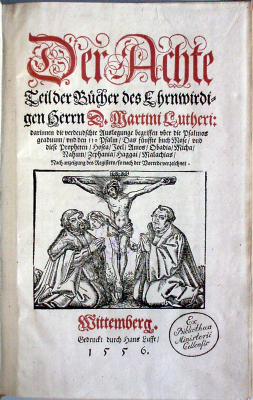 Der Achte
Teil der Bücher des Ehrnwirdi-
gen Herrn D. Martini Lutheri:
darinnen die verdeudschte Auslegunge begriffen vber die Psalmos
graduum / vnd den 110 Psalm / Das fünffte buch Mose / vnd
diese Propheten / Hosea / Joel / Amos / Obadia / Micha /
Nahum / Zephania / Haggai / Malachias /
Nach anzeigung des Registers / so nach der Vorrede verzeichnet.
Wittemberg.
Gedruckt durch Hans Lufft /
1556.
Ex
Bibliotheca
Ministerii
Cellensis